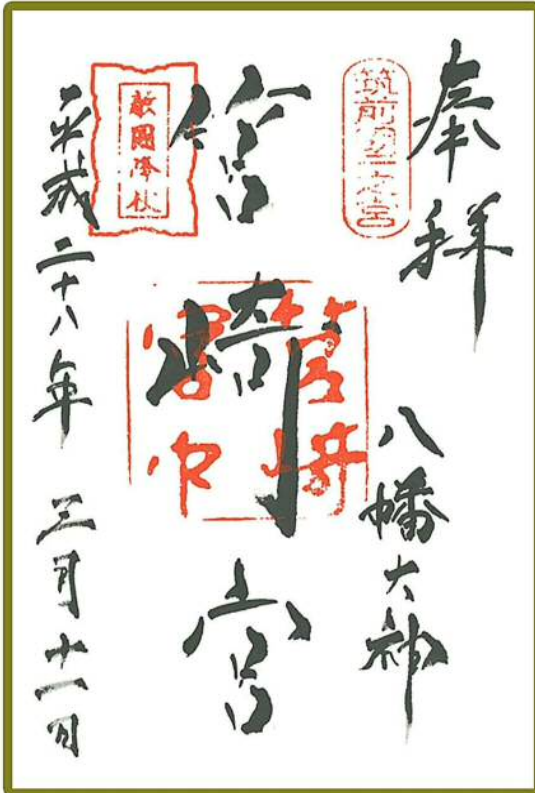 奉拝
筑前國一之宮
八幡大神
筥崎宮
筥崎
宮印
敵國降伏
平成二十八年 三月十一日